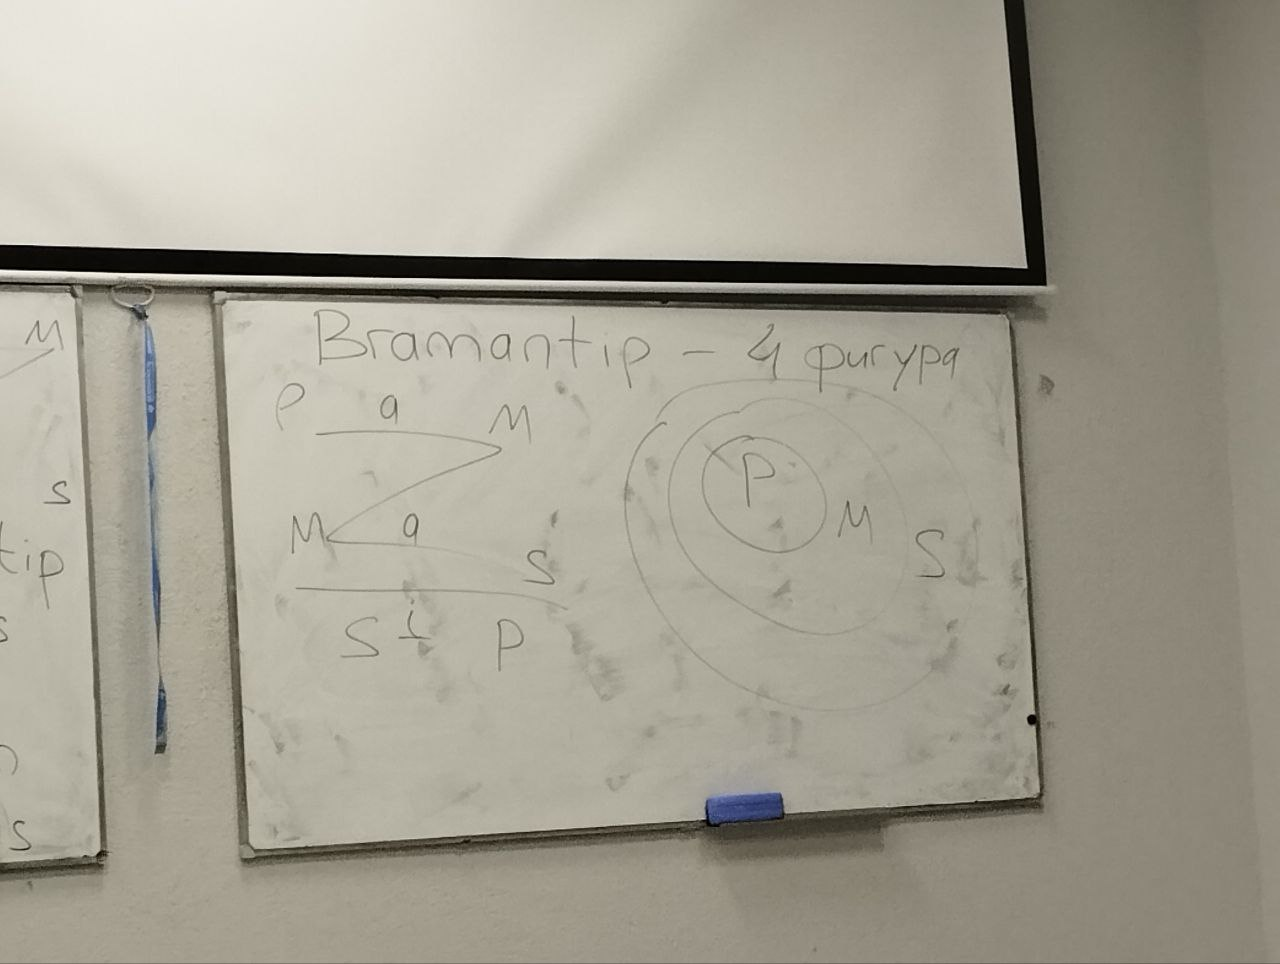 M
s
tip
s
s
Bramantip – 4 фигура
P a M
M a S
S i P
P M S